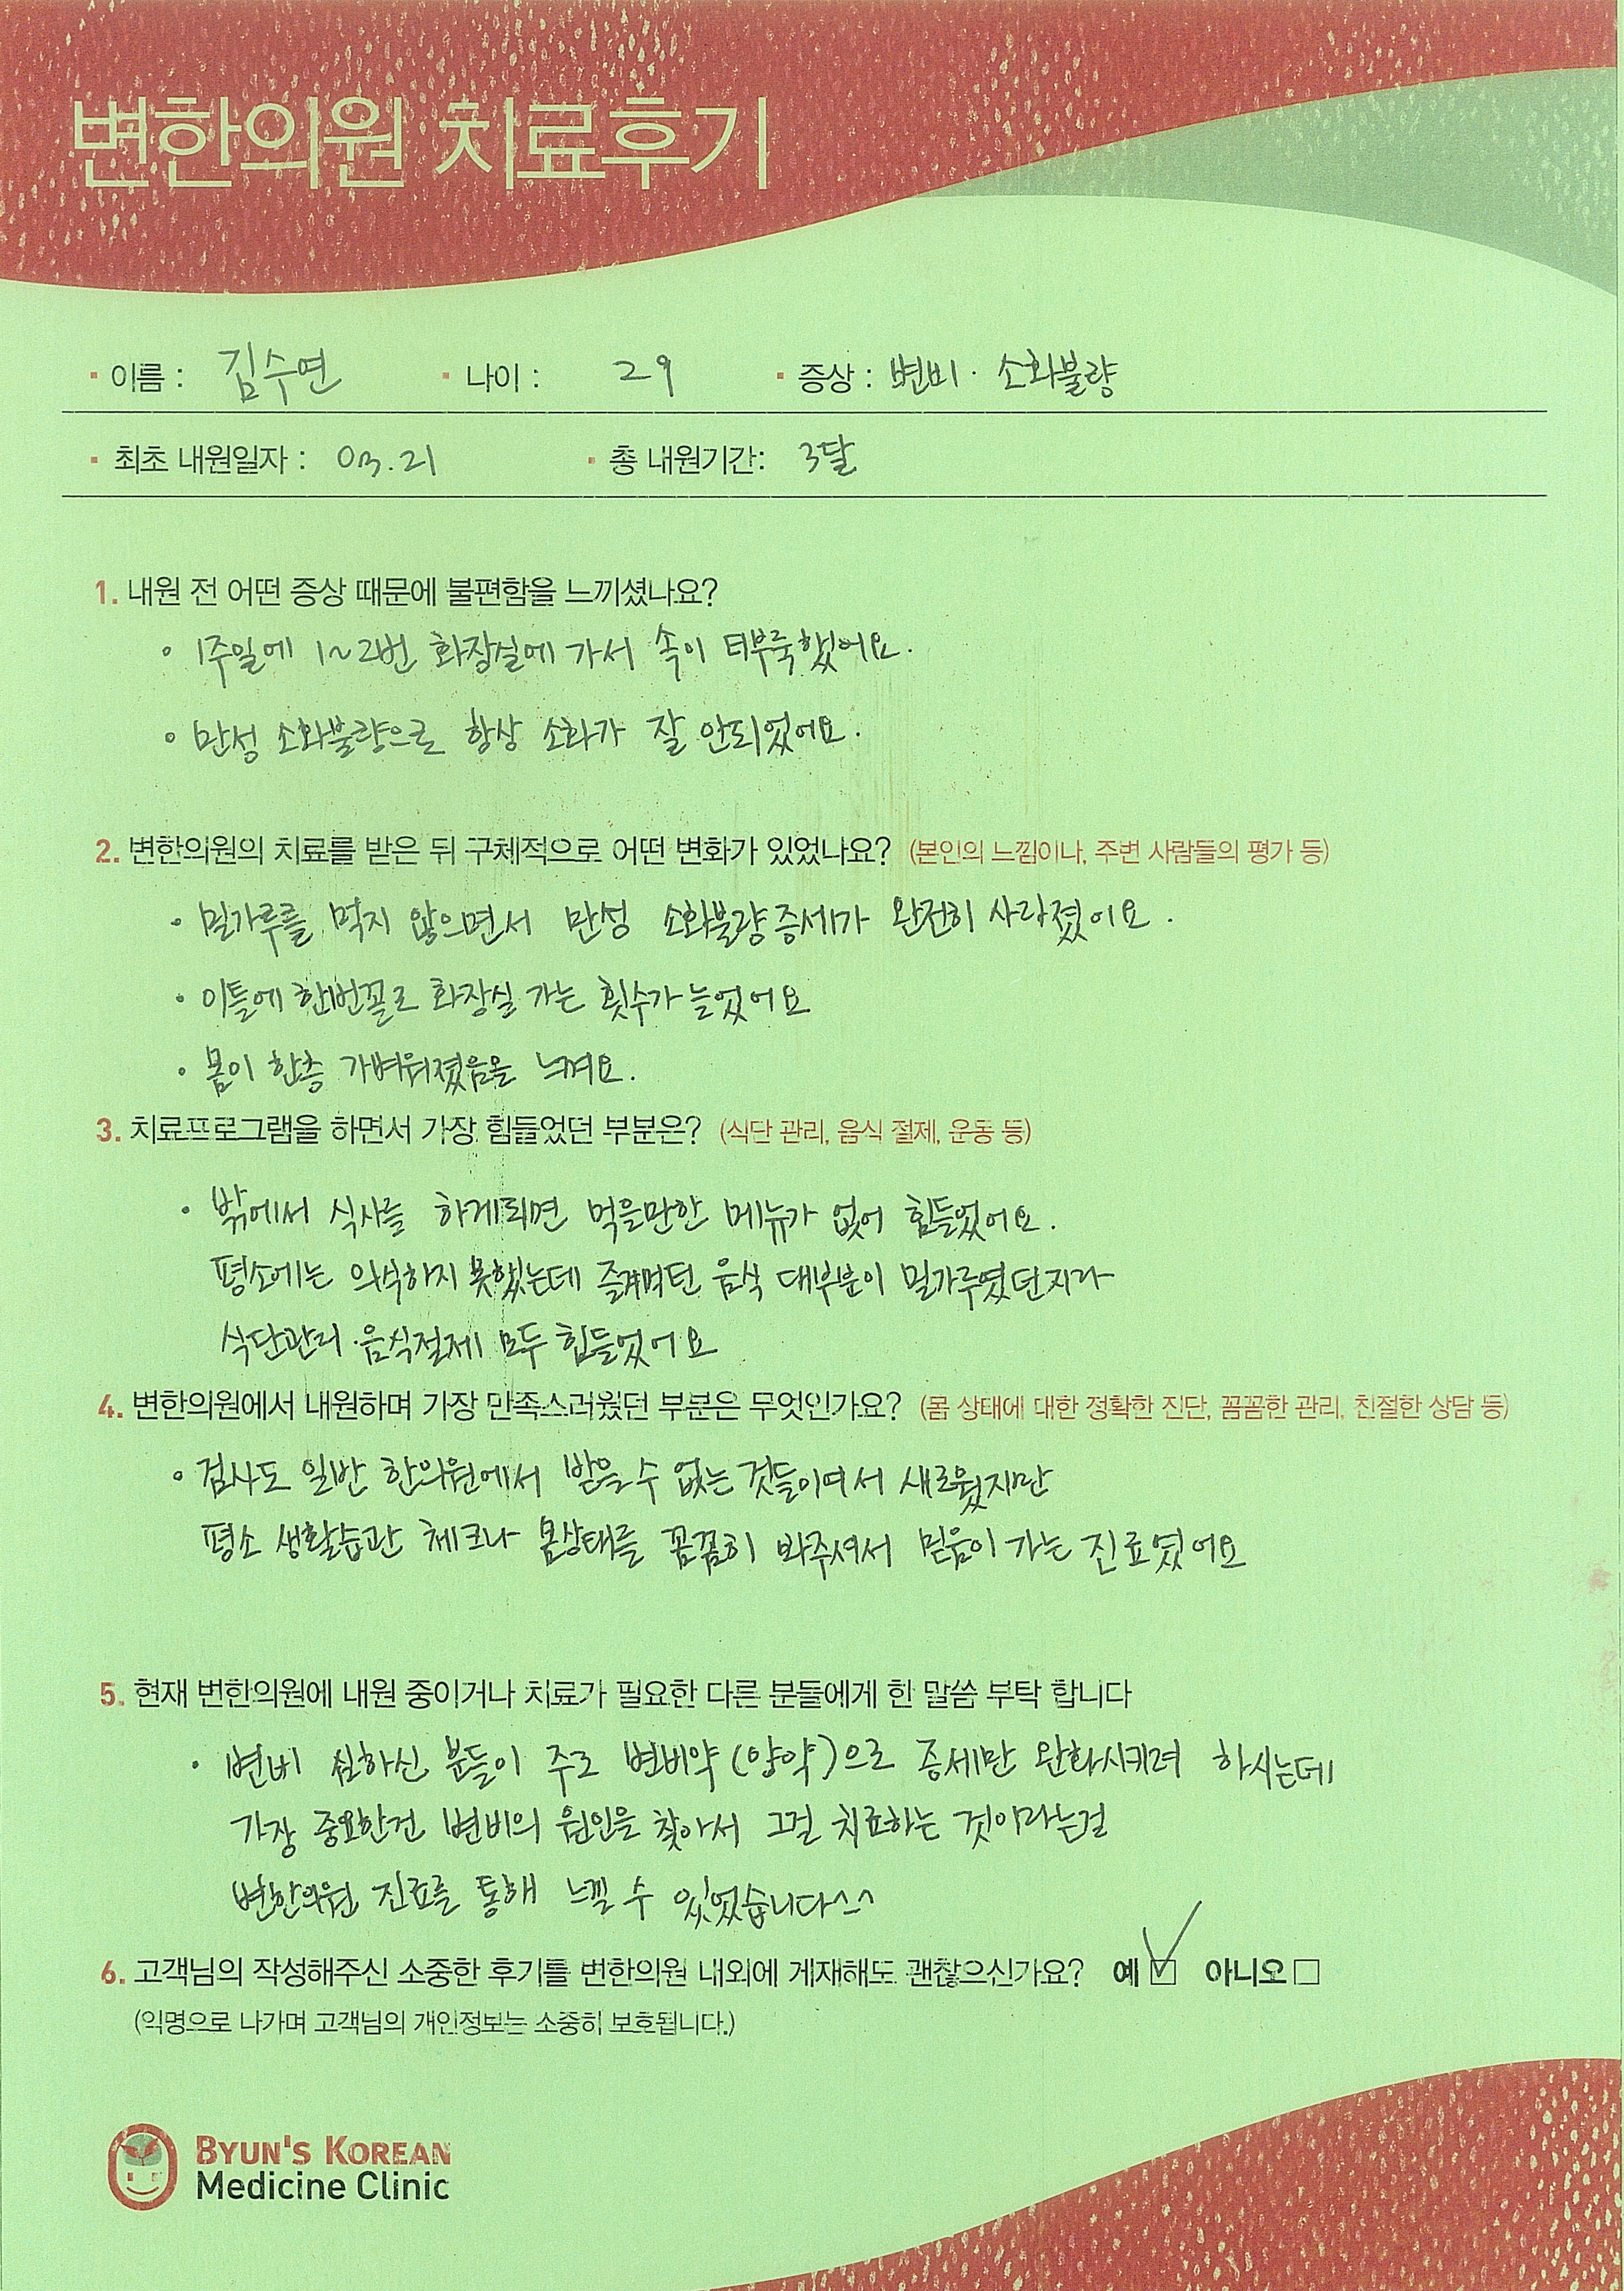 변한의원 치료후기
· 이름 : 김수연 · 나이 : 29 · 증상 : 변비 · 소화불량
· 최초 내원일자 : 03.21 · 총 내원기간: 3달
1. 내원 전 어떤 증상 때문에 불편함을 느끼셨나요?
◦ 1주일에 1~2번 화장실에 가서 속이 더부룩했어요.
◦ 만성 소화불량으로 항상 소화가 잘 안되었어요.
2. 변한의원의 치료를 받은 뒤 구체적으로 어떤 변화가 있었나요? (본인의 느낌이나, 주변 사람들의 평가 등)
· 밀가루를 먹지 않으면서 만성 소화불량증세가 완전히 사라졌어요.
· 이틀에 한번꼴로 화장실 가는 횟수가 늘었어요
· 몸이 한층 가벼워졌음을 느껴요.
3. 치료프로그램을 하면서 가장 힘들었던 부분은? (식단 관리, 음식 절제, 운동 등)
· 밖에서 식사를 하게되면 먹을만한 메뉴가 없어 힘들었어요.
평소에는 의식하지 못했는데 즐겨먹던 음식 대부분이 밀가루였던지라
식단관리·음식절제 모두 힘들었어요
4. 변한의원에서 내원하며 가장 만족스러웠던 부분은 무엇인가요? (몸 상태에 대한 정확한 진단, 꼼꼼한 관리, 친절한 상담 등)
◦ 검사도 일반 한의원에서 받을 수 없는 것들이여서 새로웠지만
평소 생활습관 체크나 몸상태를 꼼꼼히 봐주셔서 믿음이 가는 진료였어요
5. 현재 변한의원에 내원 중이거나 치료가 필요한 다른 분들에게 한 말씀 부탁 합니다
· 변비 심하신 분들이 주로 변비약(양약)으로 증세만 완화시키려 하시는데
가장 중요한건 변비의 원인을 찾아서 그걸 치료하는 것이라는걸
변한의원 진료를 통해 느낄 수 있었습니다^^
6. 고객님의 작성해주신 소중한 후기를 변한의원 내외에 게재해도 괜찮으신가요? 예 ☑ 아니오 □
(익명으로 나가며 고객님의 개인정보는 소중히 보호됩니다.)
BYUN'S KOREAN
Medicine Clinic